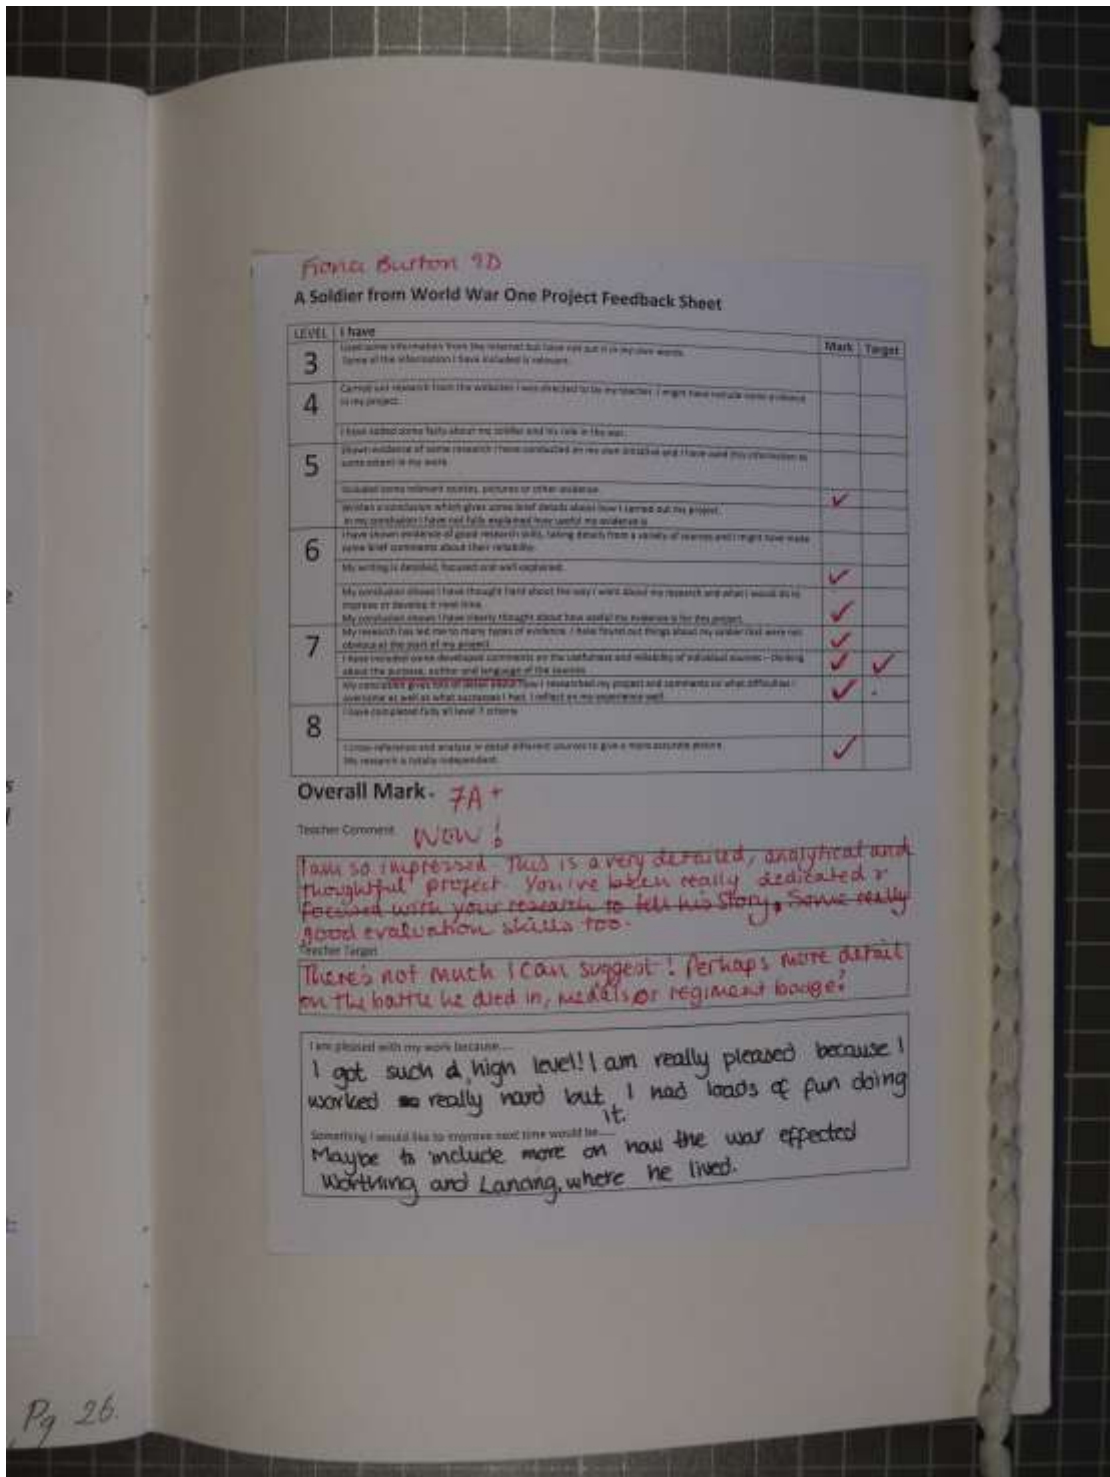 Fiona Burton 9D
A Soldier from World War One Project Feedback Sheet
LEVEL I have Mark Target
3 Used some information from the internet but have not put it in my own words.
Some of the information I have included is relevant.
4 Carried out research from the websites I was directed to by my teacher. I might have include some evidence
in my project.
I have added some facts about my soldier and his role in the war.
5 Shown evidence of some research I have conducted on my own initiative and I have used this information to
some extent in my work.
Included some relevant sources, pictures or other evidence.
Written a conclusion which gives some brief details about how I carried out my project.
In my conclusion I have not fully explained how useful my evidence is
6 I have shown evidence of good research skills, taking details from a variety of sources and I might have made
some brief comments about their reliability.
My writing is detailed, focused and well explained.
My conclusion shows I have thought hard about the way I went about my research and what I would do to
improve or develop it next time.
My conclusion shows I have clearly thought about how useful my evidence is for this project.
7 My research has led me to many types of evidence. I have found out things about my soldier that were not
obvious at the start of my project.
I have included some developed comments on the usefulness and reliability of individual sources – thinking
about the purpose, author and language of the sources.
My conclusion gives lots of detail about how I researched my project and comments on what difficulties I
overcame as well as what successes I had. I reflect on my experience well.
8 I have completed fully all level 7 criteria
I cross-reference and analyse in detail different sources to give a more accurate picture.
My research is totally independent.
Overall Mark- 7A+
Teacher Comment WOW!
I am so impressed. This is a very detailed, analytical and
thoughtful project. You've been really dedicated &
focused with your research to tell his story. Some really
good evaluation skills too.
Teacher Target
There's not much I can suggest! Perhaps more detail
on the battle he died in, medals or regiment badge?
I am pleased with my work because....
I got such a high level! I am really pleased because I
worked really hard but I had loads of fun doing
it.
Something I would like to improve next time would be.....
Maybe to include more on how the war effected
Worthing and Lancing, where he lived.
Pg 26.